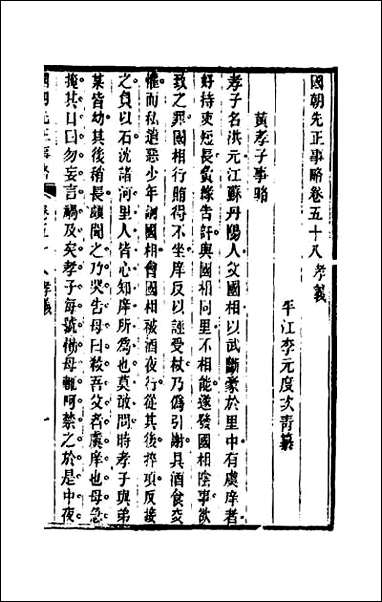 國朝先正事略卷五十八 孝義
平江李元度次青纂
黃孝子事略
孝子名洪元江蘇丹陽人父國相以武斷豪於里中有虞庠者
好持吏短長負緣告訐與國相同里不相能遂發國相陰事欲
致之罪國相行賄得不坐庠反以誣受杖乃僞引謝具酒食交
懽而私遣惡少年調國相會國相被酒夜行從其後捽項反接
之負以石沈諸河里人皆心知庠所爲也莫敢問時孝子與弟
某皆幼其後稍長頗聞之乃哭告母曰殺吾父者虞庠也母急
掩其口曰勿妄言禍及矣孝子每號慟母輒呵禁之於是中夜
國朝先正事略 卷五十八 孝義 一